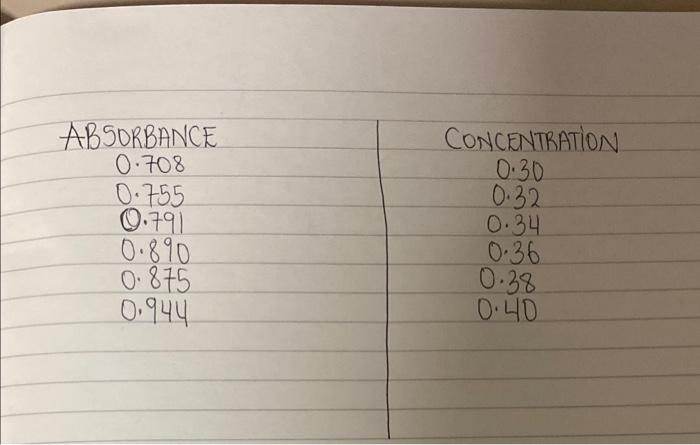 ABSORBANCE CONCENTRATION
0.708 0.30
0.755 0.32
0.791 0.34
0.890 0.36
0.875 0.38
0.944 0.40